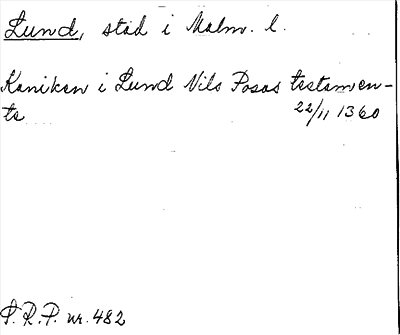 Lund, stad i Malm. l.
Kaniken i Lund Nils Posas testamen-
te 22/11 1360
P.R.P. nr. 482